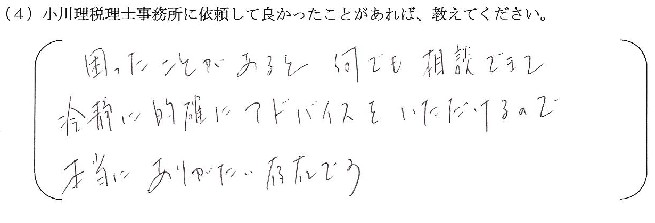 (４) 小川理税理士事務所に依頼して良かったことがあれば、教えてください。
困ったことがあると 何でも 相談できて
冷静に的確にアドバイスを いただけるので
本当に ありがたい 存在です